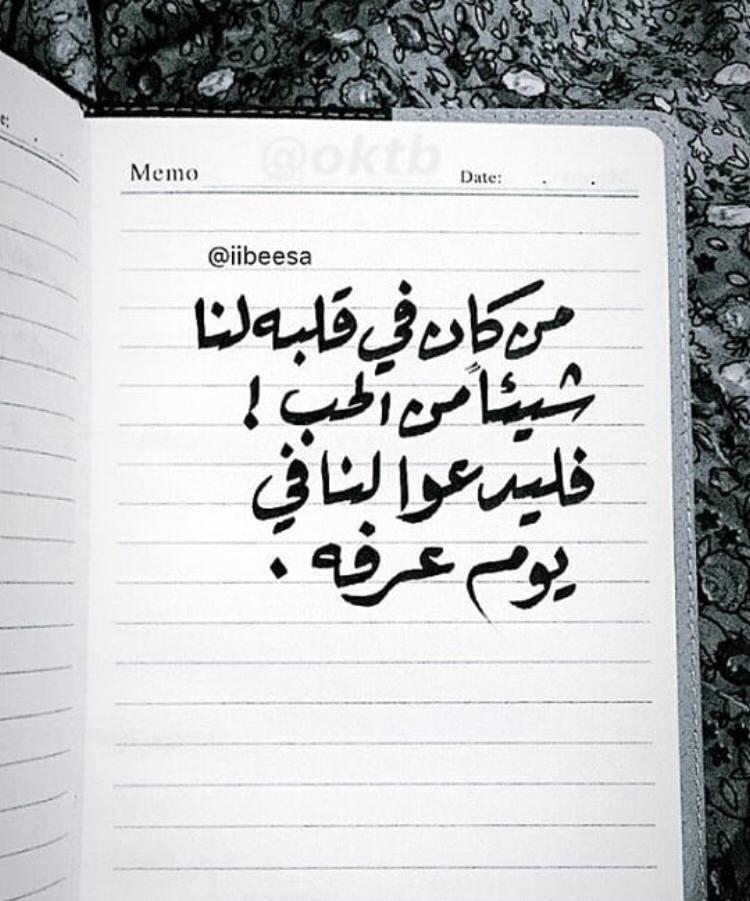 @oktb
Memo
Date: . .
@iibeesa
من كان في قلبه لنا
شيئاً من الحب !
فليدعوا لنا في
يوم عرفه .